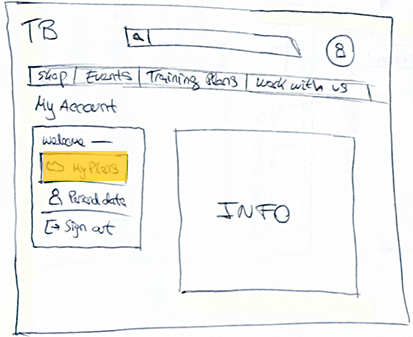 TB
Shop Events Training Plans Work with us
My Account
Welcome
My Plans
Personal data
Sign out
INFO